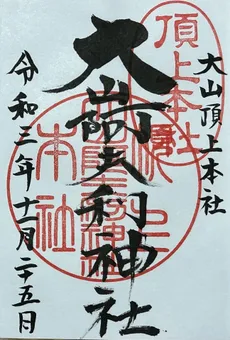 大山頂上本社
大山阿夫利神社
令和三年十月二十五日
頂上本社
本社